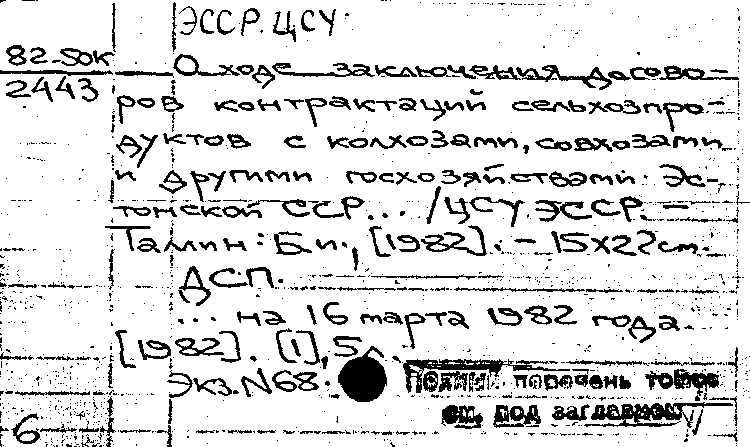 ЭССР. ЦСУ.
82-50к
2443
О ходе заключения догово-
ров контрактаций сельхозпро-
дуктов с колхозами, совхозами
и другими госхозяйствами Эс-
тонской ССР... / ЦСУ ЭССР. –
Таллин: Б.и., [1982]. – 15х22см.
ДСП.
... на 16 марта 1982 года.
[1982]. [1], 5 л.
Экз. N68.
Полный перечень томов
см. под заглавием
6